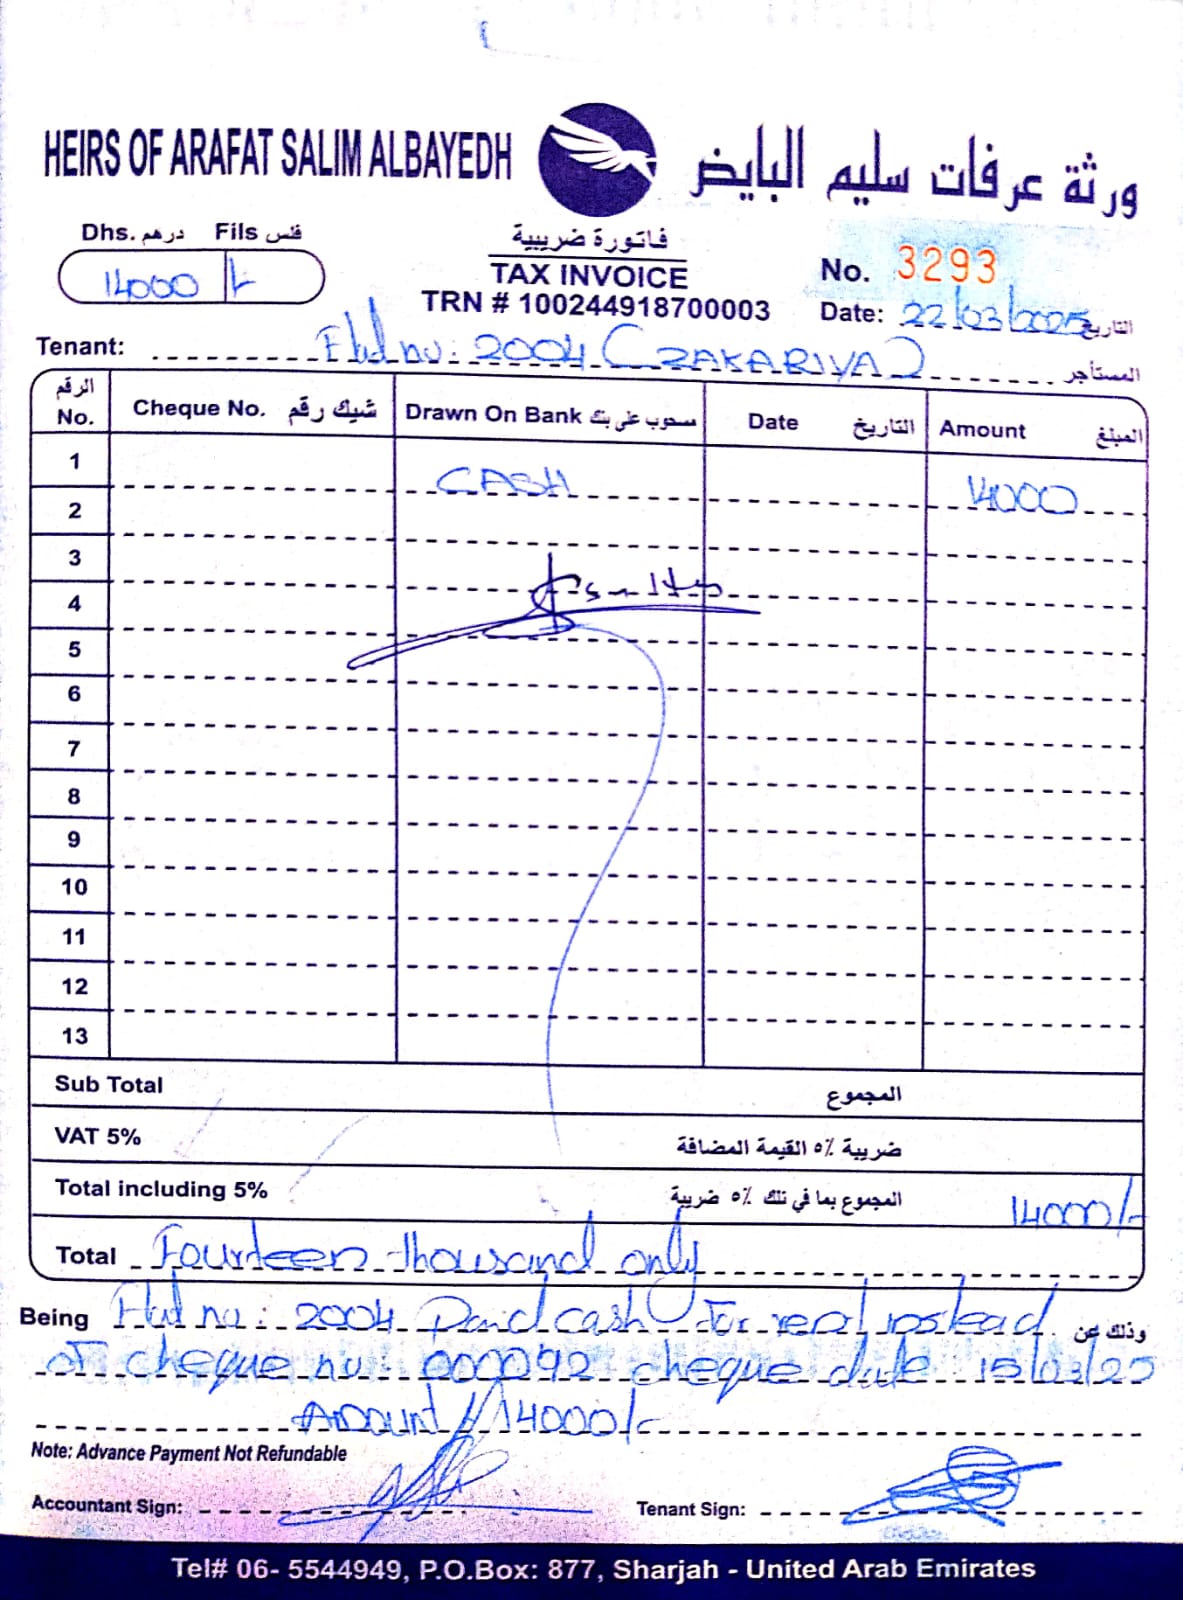 HEIRS OF ARAFAT SALIM ALBAYEDH
ورثة عرفات سليم البايض
Dhs. درهم Fils فلس
14000 /-
فاتورة ضريبية
TAX INVOICE
TRN # 100244918700003
No. 3293
Date: 22/03/2025 التاريخ
Tenant: Flat no: 2004 (ZAKARIYA) المستأجر
الرقم No. Cheque No. شيك رقم Drawn On Bank مسحوب على بنك Date التاريخ Amount المبلغ
1 CASH 14000
2
3
4
5
6
7
8
9
10
11
12
13
Sub Total المجموع
VAT 5% ضريبة ٥٪ القيمة المضافة
Total including 5% المجموع بما في ذلك ٥٪ ضريبة 14000/-
Total Fourteen thousand only
Being Flat no: 2004 Paid cash for rent instead وذلك عن
of cheque no: 000092 cheque date 15/03/25
Amount 14000/-
Note: Advance Payment Not Refundable
Accountant Sign:
Tenant Sign:
Tel# 06- 5544949, P.O.Box: 877, Sharjah - United Arab Emirates